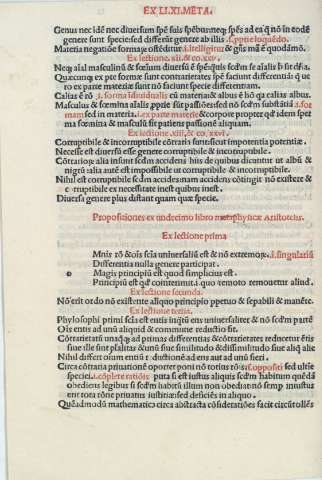 EX LI.XI.META.
Genus nec idē nec diuersum spē suis spēbus:neq; spēs ad ea q̄ nō in eodē
genere sunt specie:sed differūt genere ab illis .s.pprie loquēdo.
Materia negatiōe formaȩ ostēditur .i.itelligitur & gn̄s mā ē quodāmō.
Ex lectione.xii.& co.xxv.
Neq; al'al masculinū & fœmininū sunt spē drn̄tia licet scd̄m se al'alis b̄ sit dr̄ia.
Quæcunq; ex pte formæ sunt contrarietates spē faciunt differentiā: quæ
ro ex parte materiæ sunt nō faciunt specie differentiam.
Calitas ē rō .i. forma idiuidualis cū materia: & albus ē hō qa callias albus.
Masculus & fœmina al'alis pprie sūt passiōes:sed nō scd̄m substātiā .i.for
mam:sed in materia .i.ex parte materiæ & corpore propter qd̄ idem sper
ma fœmina & masculus fit patiens passionē aliquam.
Ex lectione.xiii.& co.xxvi.
Corruptibile & incorruptibile cōtraria sunt:sicut impotentia potentiæ.
Necesse est diuersū esse genere corruptibile & incorruptibile.
Cōtrarioȩ alia insunt scd̄m accidens hiis de quibus dicuntur ut albū &
nigrū :alia autē est impossibile ut corruptibile & incorruptibile.
Nihil est corruptibile scd̄m accidens:nam accidens cōtingit nō existere &
corruptibile ex necessitate inest quibus inest.
Diuersa genere plus distant quam quæ specie.
Propositiones ex undecimo libro metaphysicæ Aristotelis.
Ex lectione prima
Mnis rō & ois scīa uniuersaliū est & nō extremoȩ .i.singulariū
Differentia nulla genere participat.
o Magis principiū est quod simplicius est.
Principiū est qd̄ conterimit .i. quo remoto remouentur aliud.
Ex lectione secunda.
Nō erit ordo nō existente aliquo principio ppetuo & sepabili & manēte.
Ex lectione tertia.
Phylosophi primi scīa est entis inq̄tū ens uniuersaliter & nō scd̄m partē
Ois entis ad unū aliquid & commune reductio fit.
Cōtrarietatū unaq̄q; ad primas differentias & cōtrarietates reducetur ētis
siue ille sunt plalitas & unū siue similitudo & dissimilitudo siue aliq̄ alie
Nihil differt oium entiū reductionē ad ens aut ad unū fieri.
Circa cōtraria priuatiōne oportet poni nō totius rōis .s.oppositi sed ultie
speciei .i.cōplete ratiōis puta si est iustus aliquis scd̄m habitum quēdā
obediens legibus si scd̄m habitū illum non obediat nō semp iniustus
erit tota rōne priuatus iustitiæ:sed deficiēs in aliquo.
Quēadmodū mathematicus circa abstracta cōsideratiōes facit circūtollēs